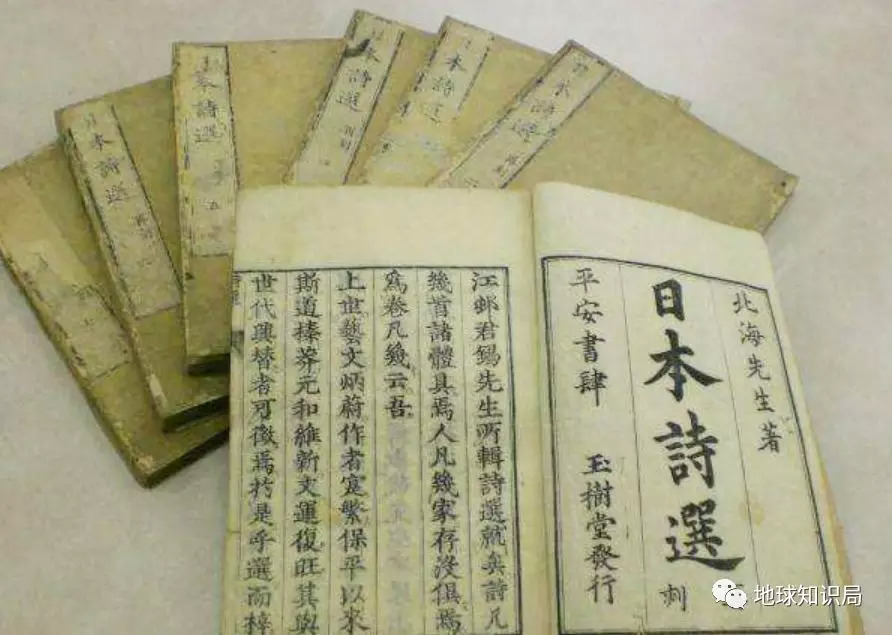 日本詩選
日本詩選
本詩選
五
本詩選
本詩選
本詩選
北海先生著
日本詩選
刺
平安書肆 玉樹堂發行
江邨君錫先生所輯詩選就矣詩凡
幾首諸體具焉人凡幾家存沒俱焉
為卷凡幾云吾
上世藝文炳蔚作者寔繁保平以來
斯道榛莽元和維新文運復旺其與
世代興替者可徵焉於是乎選而梓
地球知识局